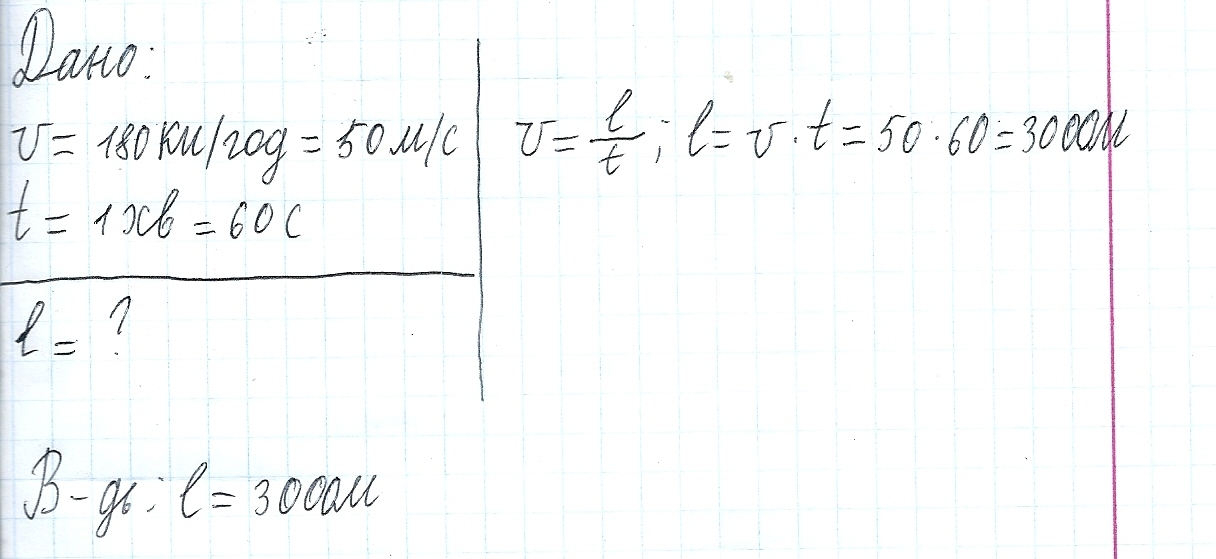 Дано:
v = 180км/год = 50м/с
t = 1хв = 60с
l = ?
v = l/t; l = v · t = 50 · 60 = 3000м
В-дь: l = 3000м